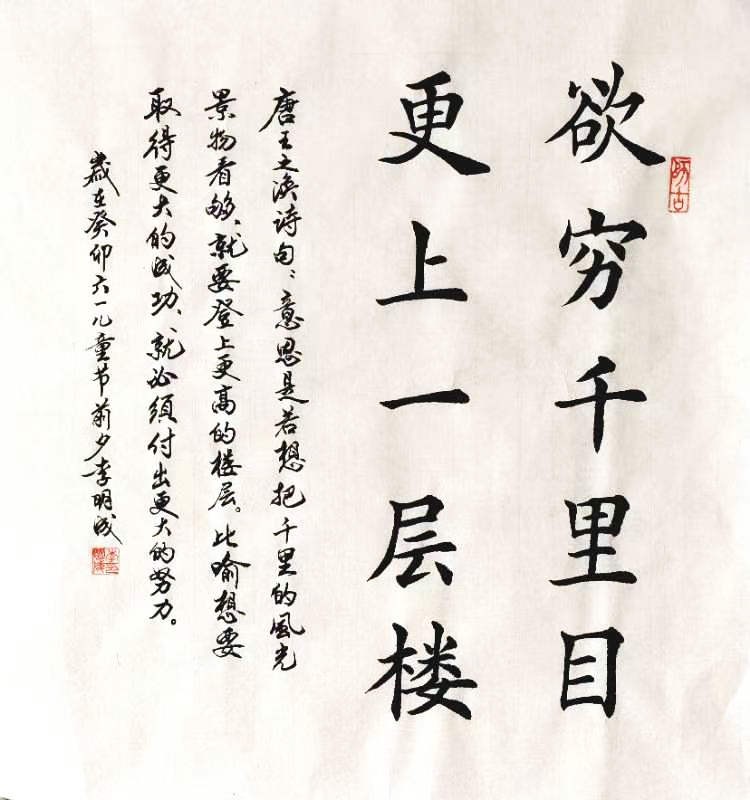 欲穷千里目
更上一层楼
唐王之涣诗句：意思是若想把千里的風光
景物看够、就要登上更高的楼层。比喻想要
取得更大的成功、就必须付出更大的努力。
歲在癸卯六一儿童节前夕李明成
师古